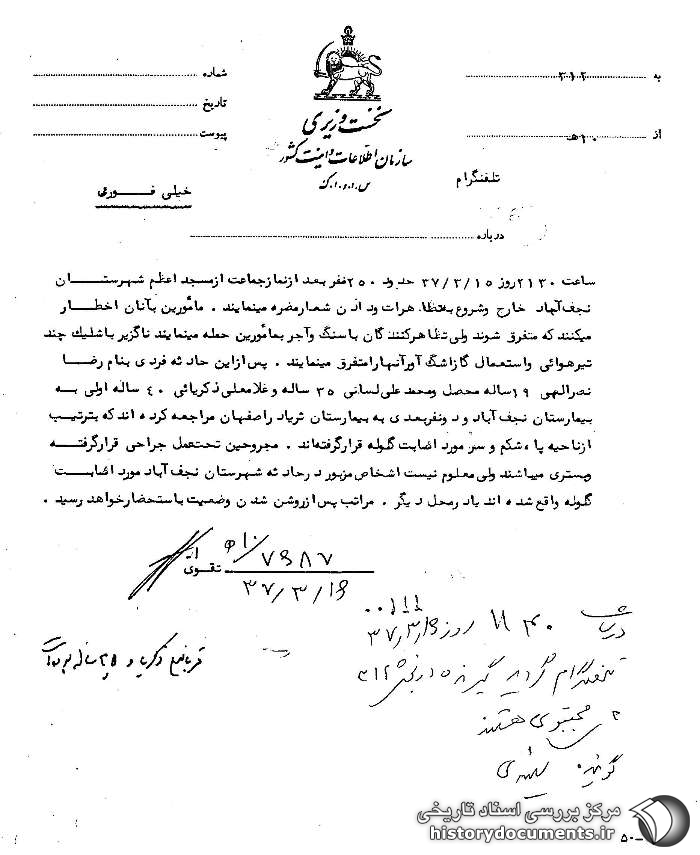 به ۳۱۲
شماره
تاریخ
از ۱۰ ﻫ
پیوست
نخست وزیری
سازمان اطلاعات و امنیت کشور
س.ا.و.ا.ک
تلفنگرام
خیلی فوری
درباره
ساعت ۲۱۳۰ روز ۳۷/۳/۱۵ حدود ۲۵۰ نفر بعد از نماز جماعت از مسجد اعظم شهرستان
نجف آباد خارج و شروع به تظاهرات و دادن شعار مضره مینمایند . مأمورین بآنان اخطار
میکنند که متفرق شوند ولی تظاهرکنندگان با سنگ و آجر بمأمورین حمله مینمایند ناگزیر با شلیک چند
تیر هوائی و استعمال گاز اشگ آور آنها را متفرق مینمایند . پس از این حادثه فردی بنام رضا
نصرالهی ۱۹ ساله محصل و محمد علی لسانی ۳۵ ساله و غلامعلی ذکریائی ۴۰ ساله اولی به
بیمارستان نجف آباد و دو نفر بعدی به بیمارستان ثریا در اصفهان مراجعه کرده اند که بترتیب
از ناحیه پا ، شکم و سر مورد اصابت گلوله قرار گرفته اند . مجروحین تحت عمل جراحی قرار گرفته
و بستری میباشند ولی معلوم نیست اشخاص مزبور در حادثه شهرستان نجف آباد مورد اصابت
گلوله واقع شده اند یا در محل دیگر . مراتب پس از روشن شدن وضعیت باستحضار خواهد رسید .
تقوی
۱۰/ﻫ ۷۶۸۷
۳۷/۳/۱۶
ساعت ۱۱۴۰ روز ۳۷/۳/۱۶
تلفنگرام گردید گیرنده
مجتبوی هستند
گوینده
مرکز بررسی اسناد تاریخی
historydocuments.ir
۵۰-